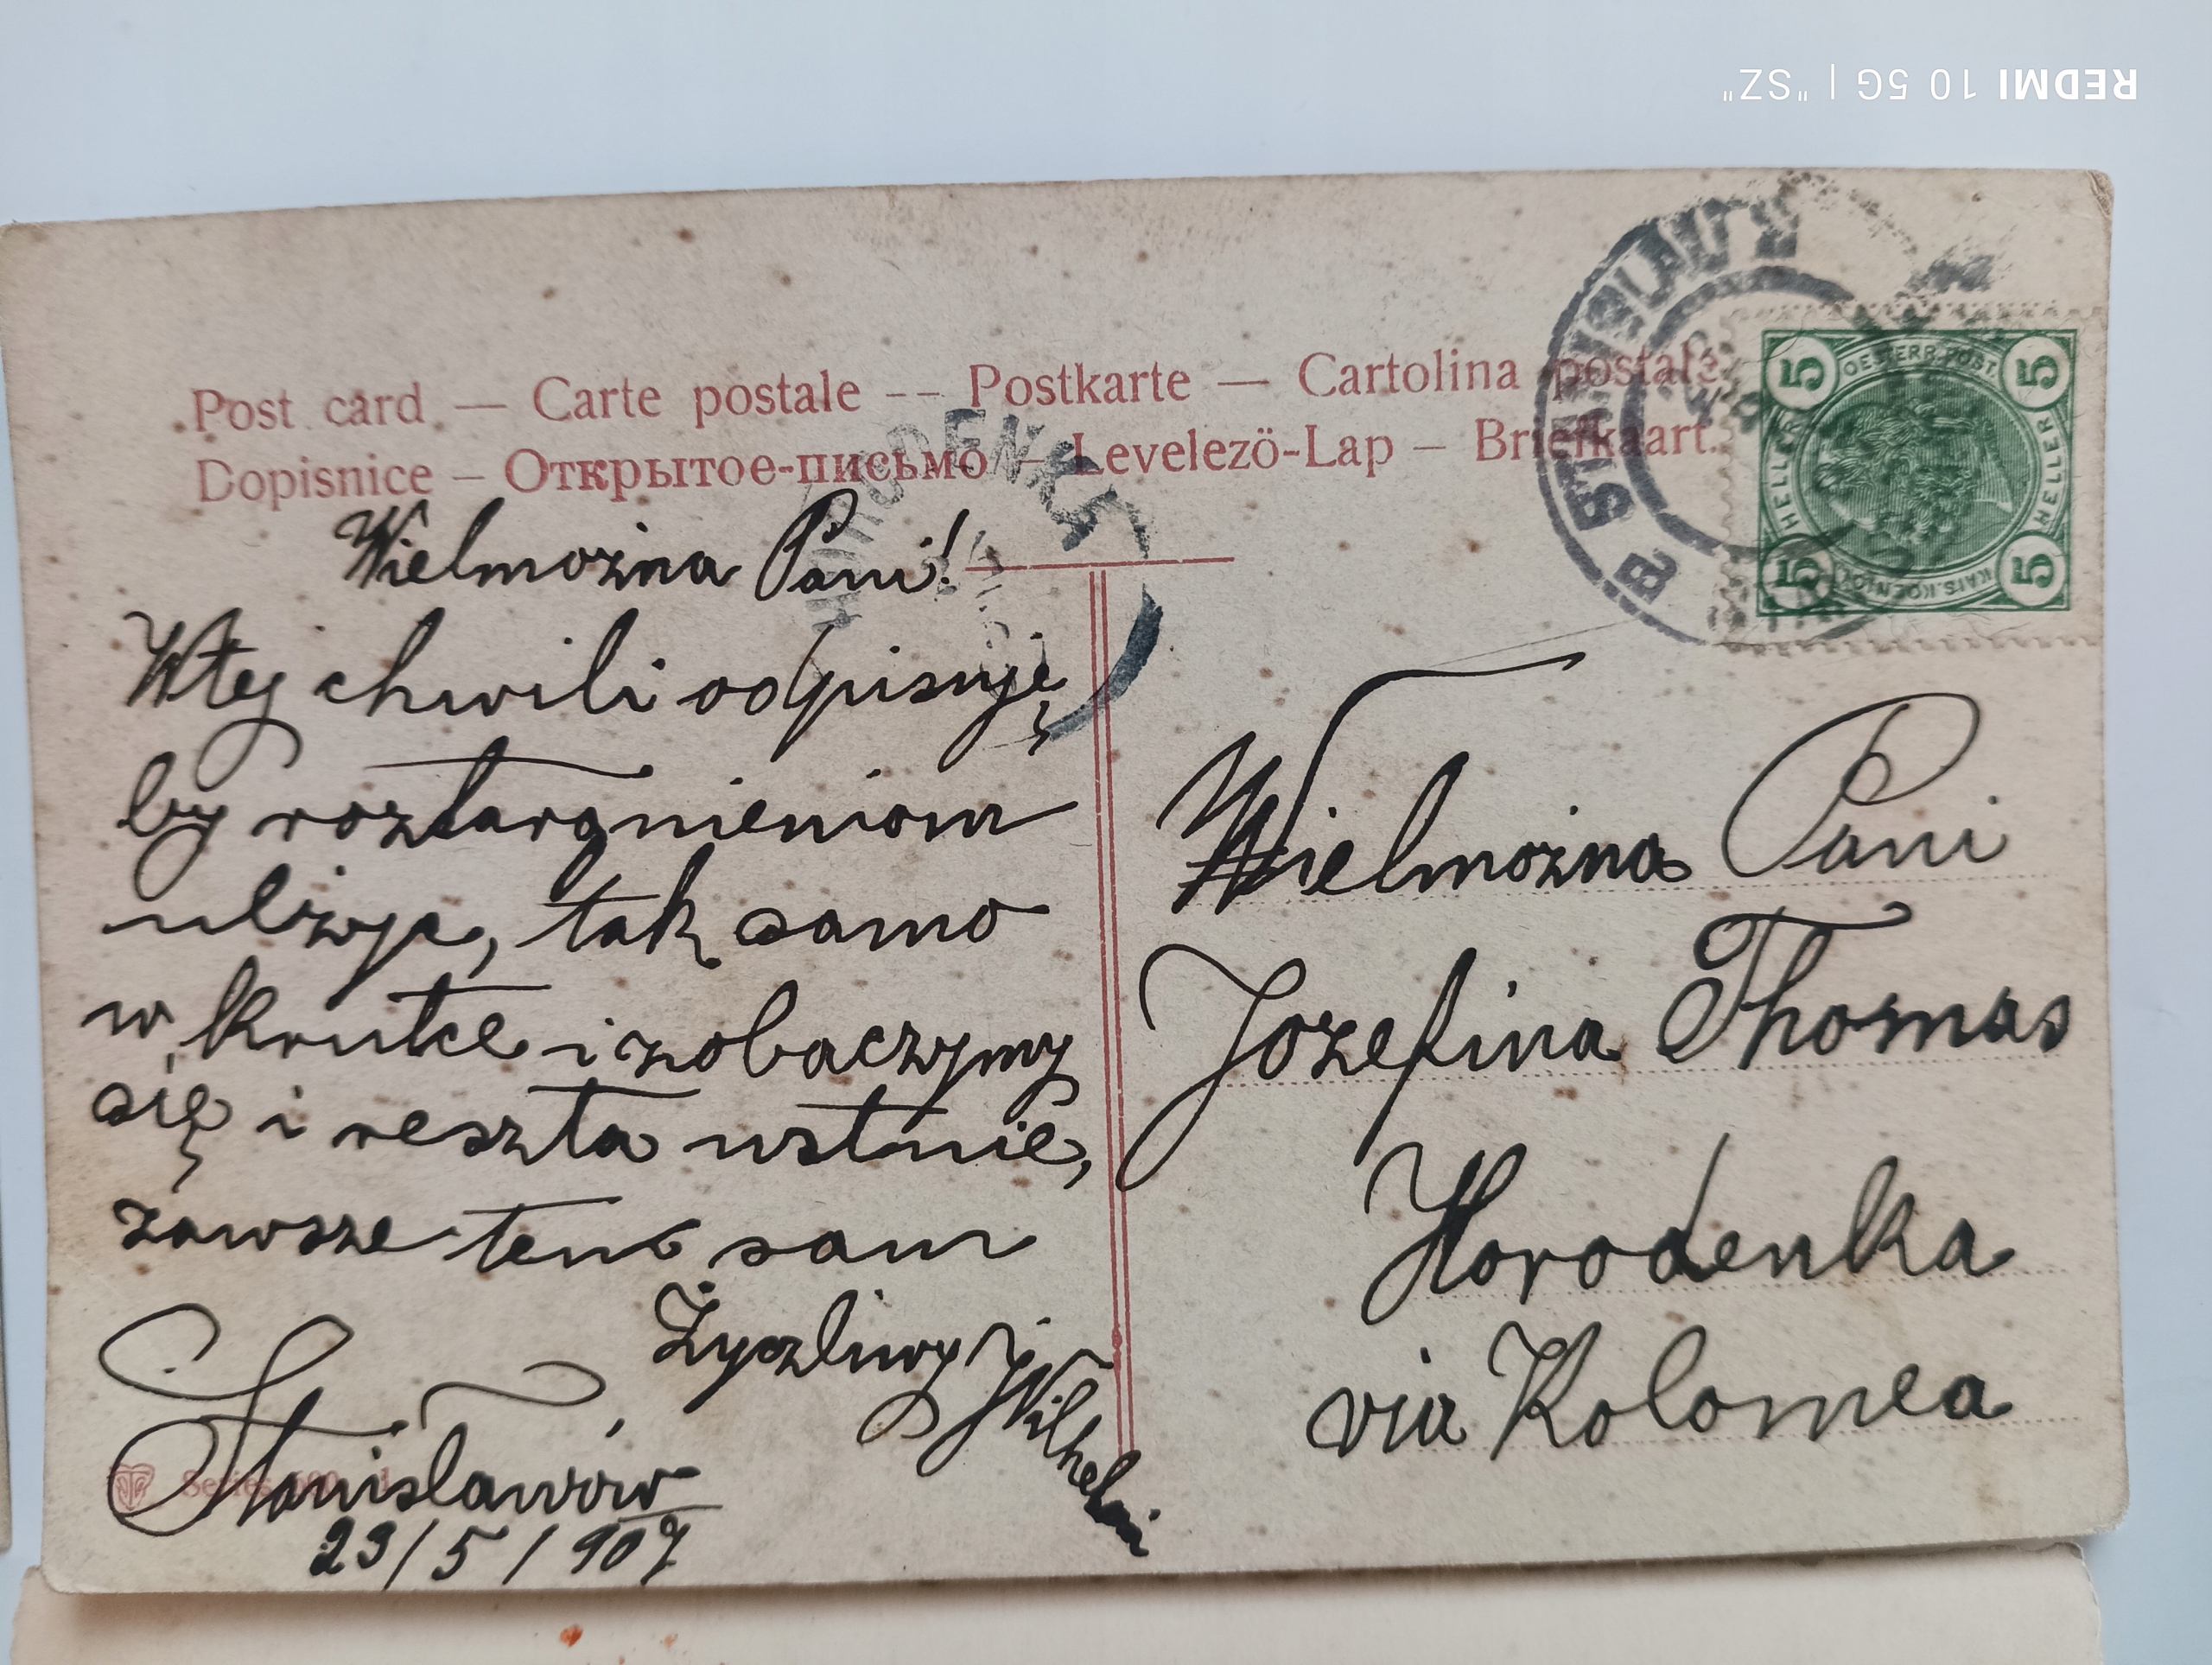 REDMI 10 5G | "SZ"
Post card — Carte postale -- Postkarte — Cartolina postale.
Dopisnice – Открытое-письмо – Levelezö-Lap – Briefkaart.
HORODENKA
B STANISLAW
5 OESTERR. POST. 5
HELLER HELLER
5 KAIS. KOENIGL. 5
Wielmożna Pani!
W tej chwili odpisuję
by roztargnieniom
ulżyć, tak samo
w krutce i zobaczymy
się i reszta ustnie,
zawsze ten sam
Życzliwy JWilhelmi
Stanisławów
Series
23/5/907
Wielmożna Pani
Jozefina Thomas
Horodenka
via Kolomea